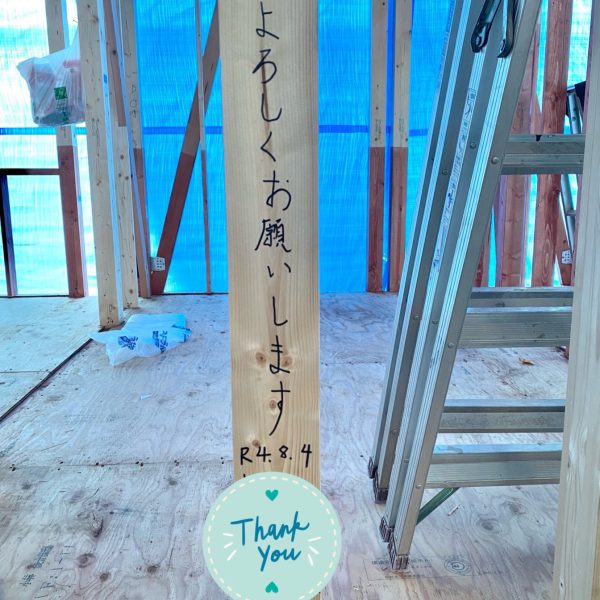 よろしくお願いします
R4.8.4
Thank
You